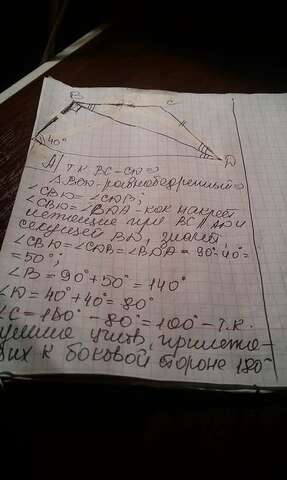 B
C
40°
Д
Д/ т.к. BC=CД ⇒
△BCД - равнобедренный ⇒
∠CBД = ∠CДB;
∠CBД = ∠BДA - как накрест
лежащие при BC || AД и
секущей BД, значит
∠CBД = ∠CДB = ∠BДA = 90°-40°=
= 50°;
∠B = 90° + 50° = 140°
∠Д = 40° + 40° = 80°
∠C = 180° - 80° = 100° - т.к.
сумма углов, прилежа-
щих к боковой стороне 180°